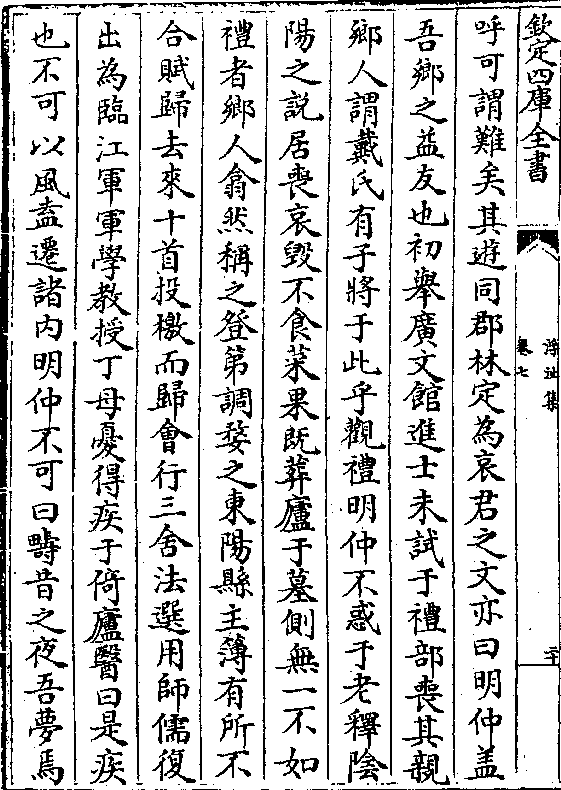 欽定四庫全書
浮沚集
卷七
二十
呼可謂難矣其遊同郡林定為哀君之文亦曰明仲盖
吾鄉之益友也初舉廣文館進士未試于禮部喪其親
鄉人謂戴氏有子將于此乎觀禮明仲不惑于老釋陰
陽之説居喪哀毀不食菜果既葬廬于墓側無一不如
禮者鄉人翕然稱之登第調婺之東陽縣主簿有所不
合賦歸去來十首投檄而歸會行三舍法選用師儒復
出為臨江軍軍學教授丁母憂得疾于倚廬醫曰是疾
也不可以風盍遷諸内明仲不可曰疇昔之夜吾夢焉